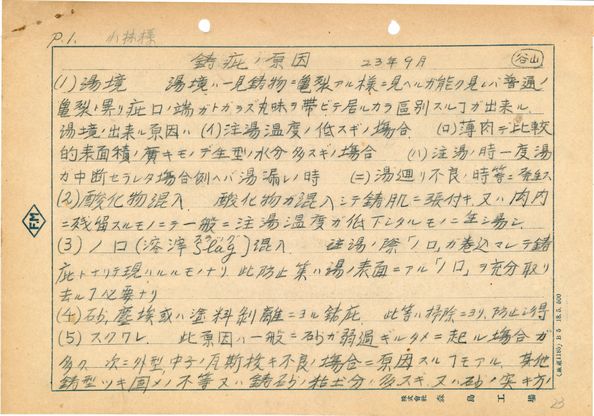 P.1. 小林様
鋳疵ノ原因 23年9月 谷山
(1)湯境 湯境ハ一見鋳物ニ亀裂アル様ニ見ヘルガ能ク見レバ普通ノ
亀裂ト異リ疵口ノ端ガトガラズ丸味ヲ帯ビテ居ルカラ區别スルヿガ出来ル
湯境ノ出来ル原因ハ (イ)注湯温度ノ低スギノ場合 (ロ)薄肉デ比較
的表面積ノ廣キモノデ生型ノ水分多スギノ場合 (ハ)注湯ノ時一度湯
ガ中断セラレタ場合例ヘバ湯漏レノ時 (ニ)湯廻リ不良ノ時等ニ発生ス
(2)酸化物混入 酸化物ガ混入シテ鋳肌ニ張付キ又ハ肉内
ニ残留スルモノニテ一般ニ注湯温度ガ低下シタルモノニ生ジ易シ
(3)ノロ(溶滓 slag)混入 注湯ノ際「ノロ」ガ巻込マレテ鋳
疵トナリテ現ハルルモノナリ 此防止策ハ湯ノ表面ニアル「ノロ」ヲ充分取リ
去ルヿ必要ナリ
(4)砂、塵埃或ハ塗料剝離ニヨル鋳疵 此等ハ掃除ニヨリ防止シ得
(5)スクワレ 此原因ハ一般ニ砂ガ弱過ギルタメニ起ル場合ガ
多ク 次ニ外型、中子ノ瓦斯抜キ不良ノ場合ニ原因スルヿモアル 其他
鋳型ツキ固メノ不等又ハ鋳砂ノ粘土分ノ多スギ又ハ砂ノ突キ方ノ
FM
株式會社 森島工場
23